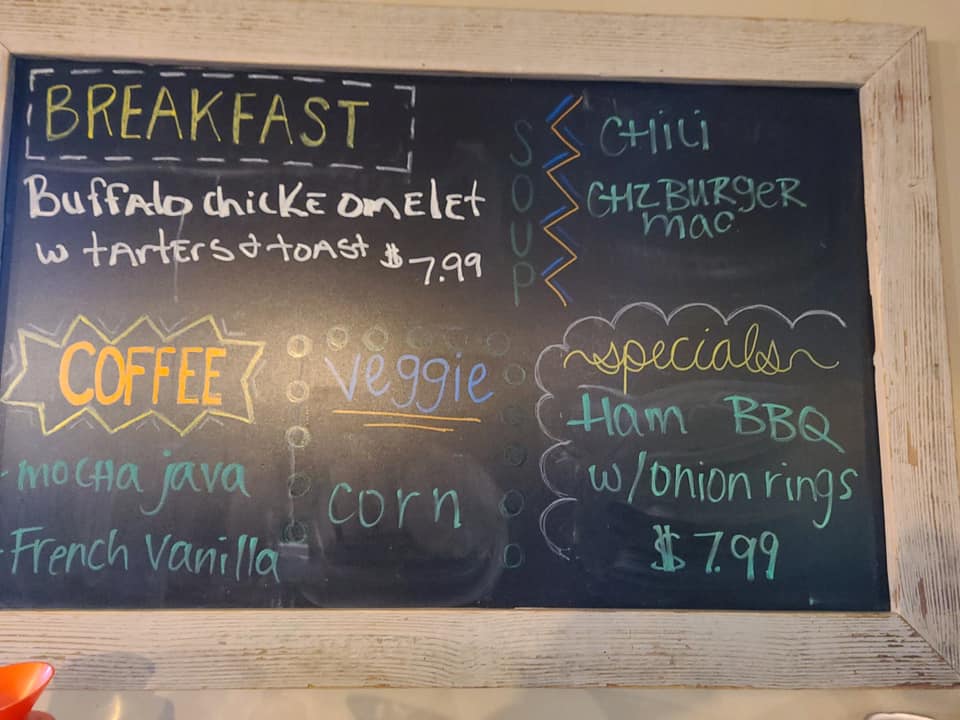 BREAKFAST
Buffalo chicKE omElEt
w tArtErs & tOAst $7.99
SOUP
CHiLi
CHZ BURgER
mac
COFFEE
- mocHa java
- French Vanilla
veggie
corn
~specials~
Ham BBQ
w/onion rings
$7.99